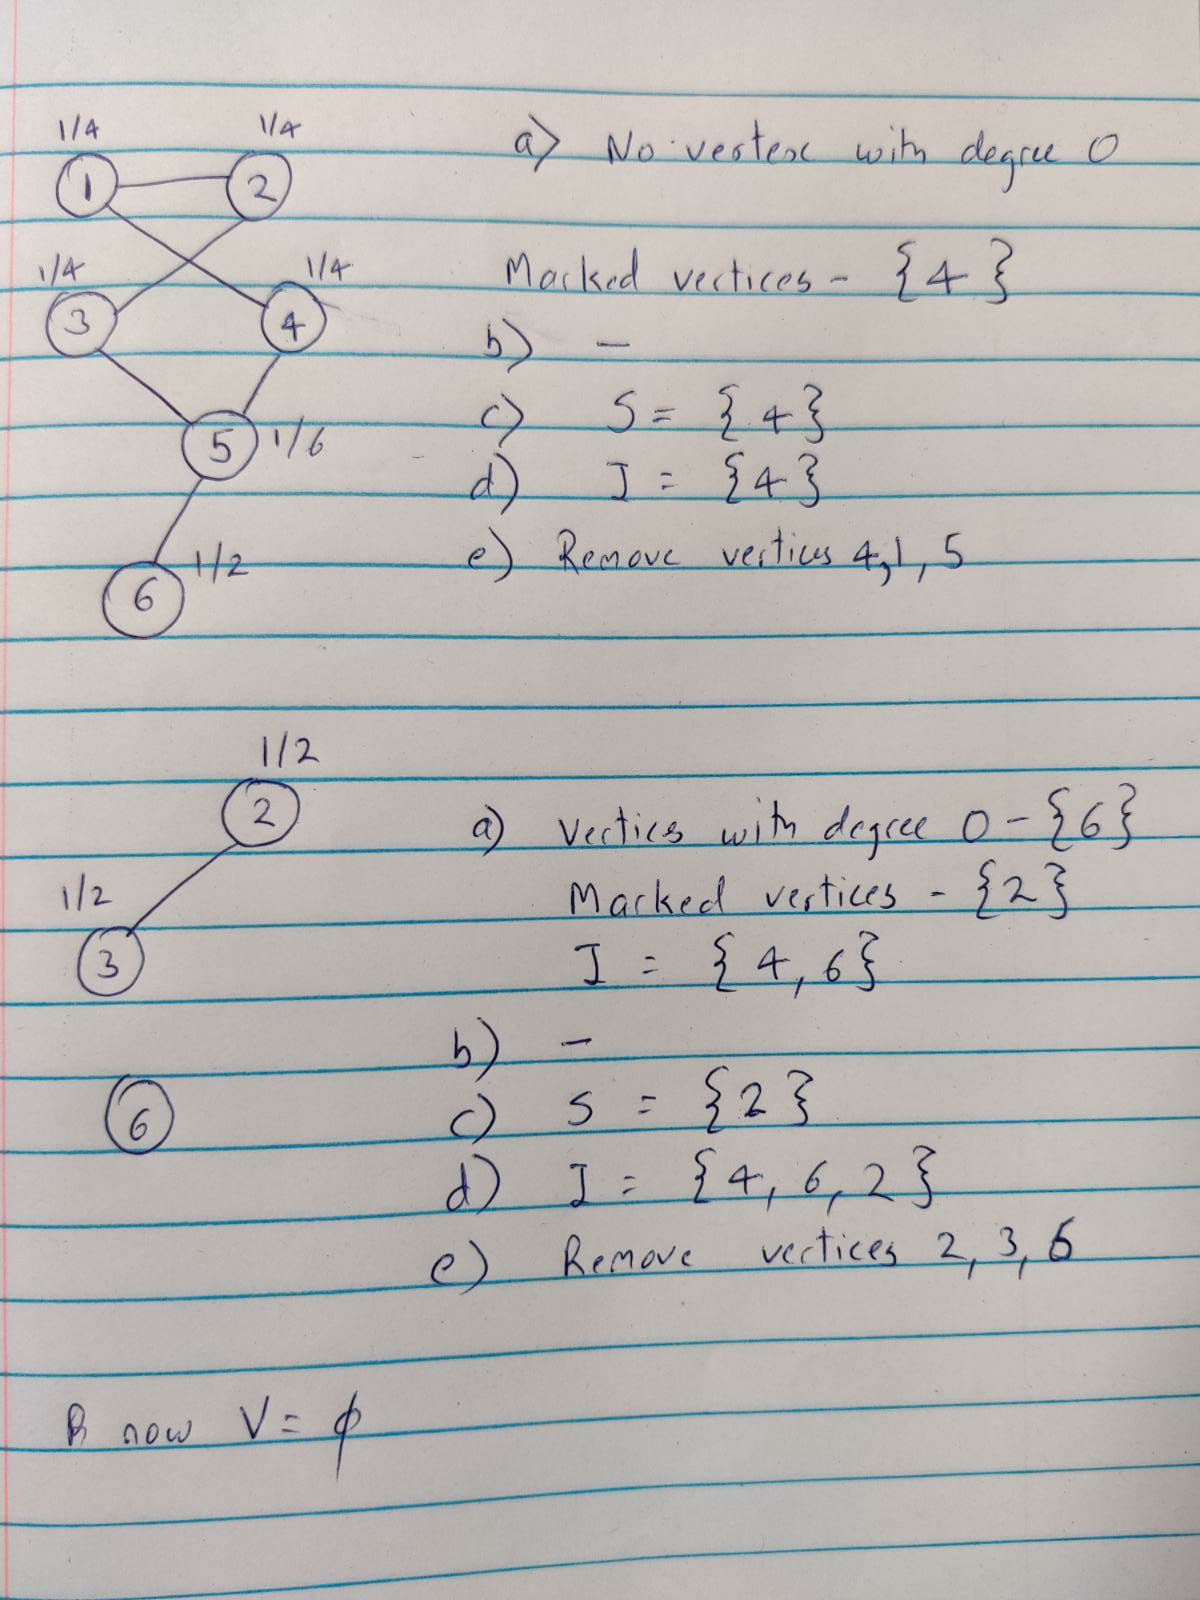 1/4 1/4
1 2
a) No vertex with degree 0
1/4 1/4
3 4
Marked vertices - { 4 }
b) -
c) S = { 4 }
5 1/6
d) I = { 4 }
e) Remove vertices 4, 1, 5
1/2
6
1/2
2
a) Vertics with degree 0 - { 6 }
1/2
Marked vertices - { 2 }
3
I = { 4, 6 }
b) -
6
c) S = { 2 }
d) I = { 4, 6, 2 }
e) Remove vertices 2, 3, 6
now V = ϕ